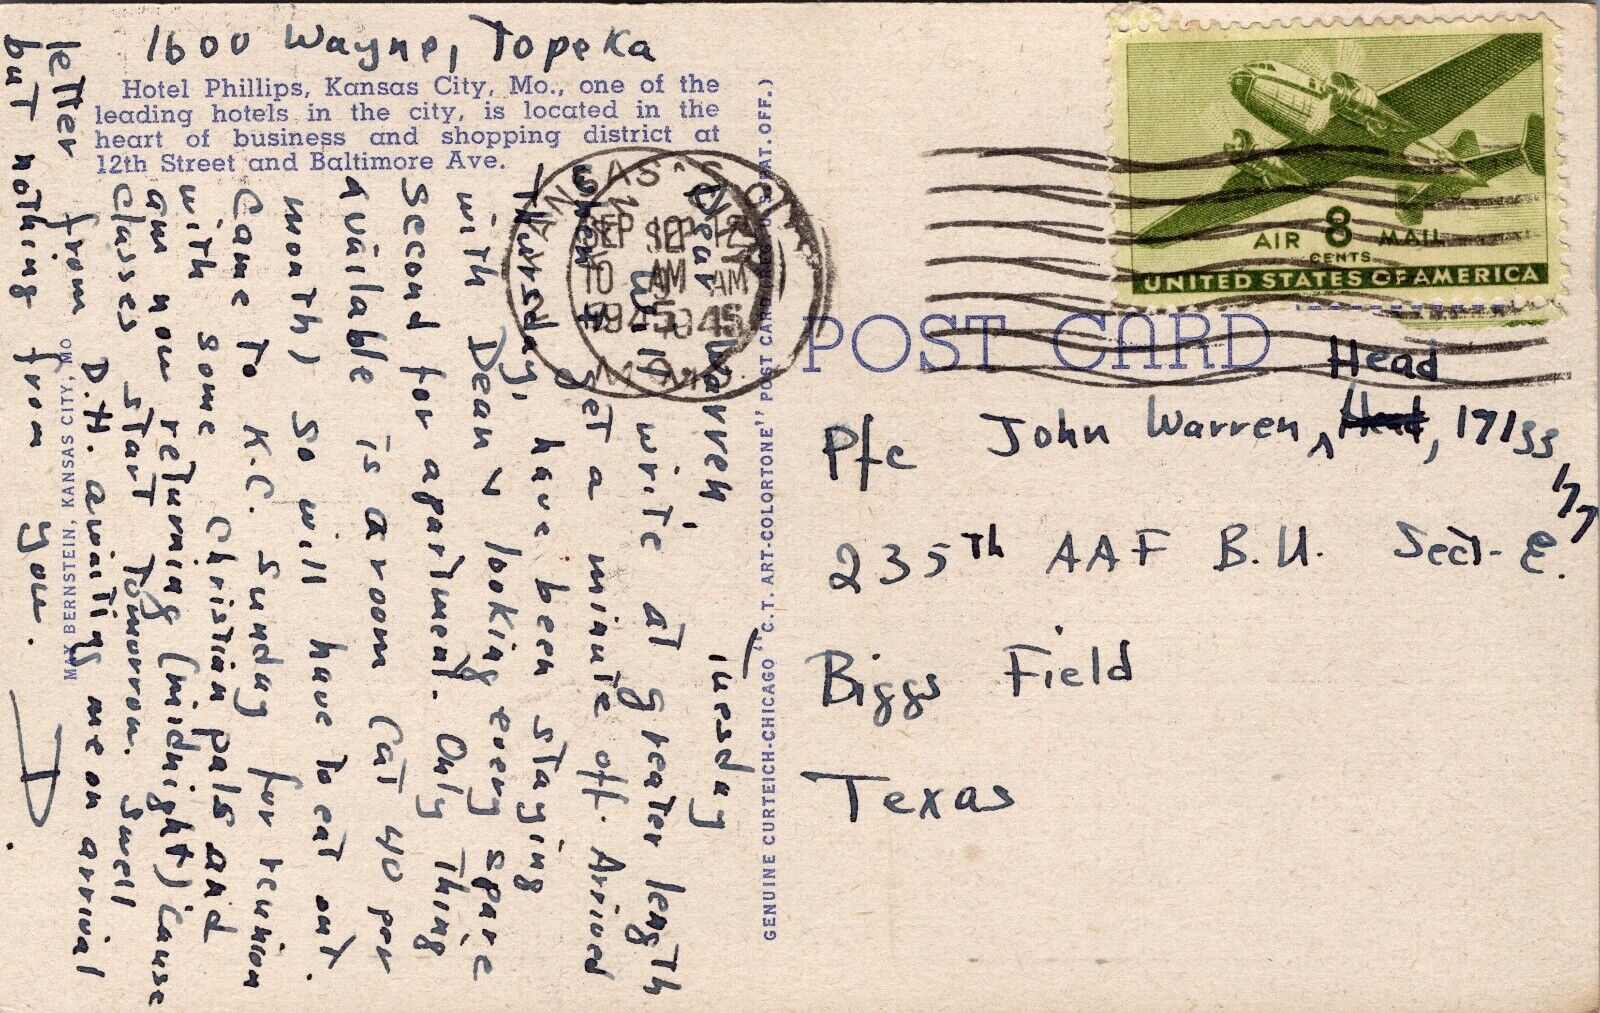 1600 Wayne, Topeka
Hotel Phillips, Kansas City, Mo., one of the
leading hotels in the city, is located in the
heart of business and shopping district at
12th Street and Baltimore Ave.
Tuesday
Dear Warren,
Will write at greater length
when I get a minute off. Arrived
Thursday, have been staying
with Dean & looking every spare
second for apartment. Only Thing
available is a room (at 40 per
month) so will have to eat out.
Came To K.C. Sunday for reunion
with some Christian pals and
am now returning (midnight) cause
classes start Tomorrow. Swell
letter from D.H. awaiting me on arrival
but nothing from you.
D.
MAX BERNSTEIN, KANSAS CITY, MO
GENUINE CURTEICH-CHICAGO "C.T. ART-COLORTONE" POST CARD (REG. U.S. PAT. OFF.)
KANSAS CITY
SEP 12
10 AM
1945
MO.
AIR 8 MAIL
CENTS
UNITED STATES OF AMERICA
POST CARD
Head
Pfc John Warren, Head, 17133
177
235Th AAF B.U. Sect-E.
Biggs Field
Texas